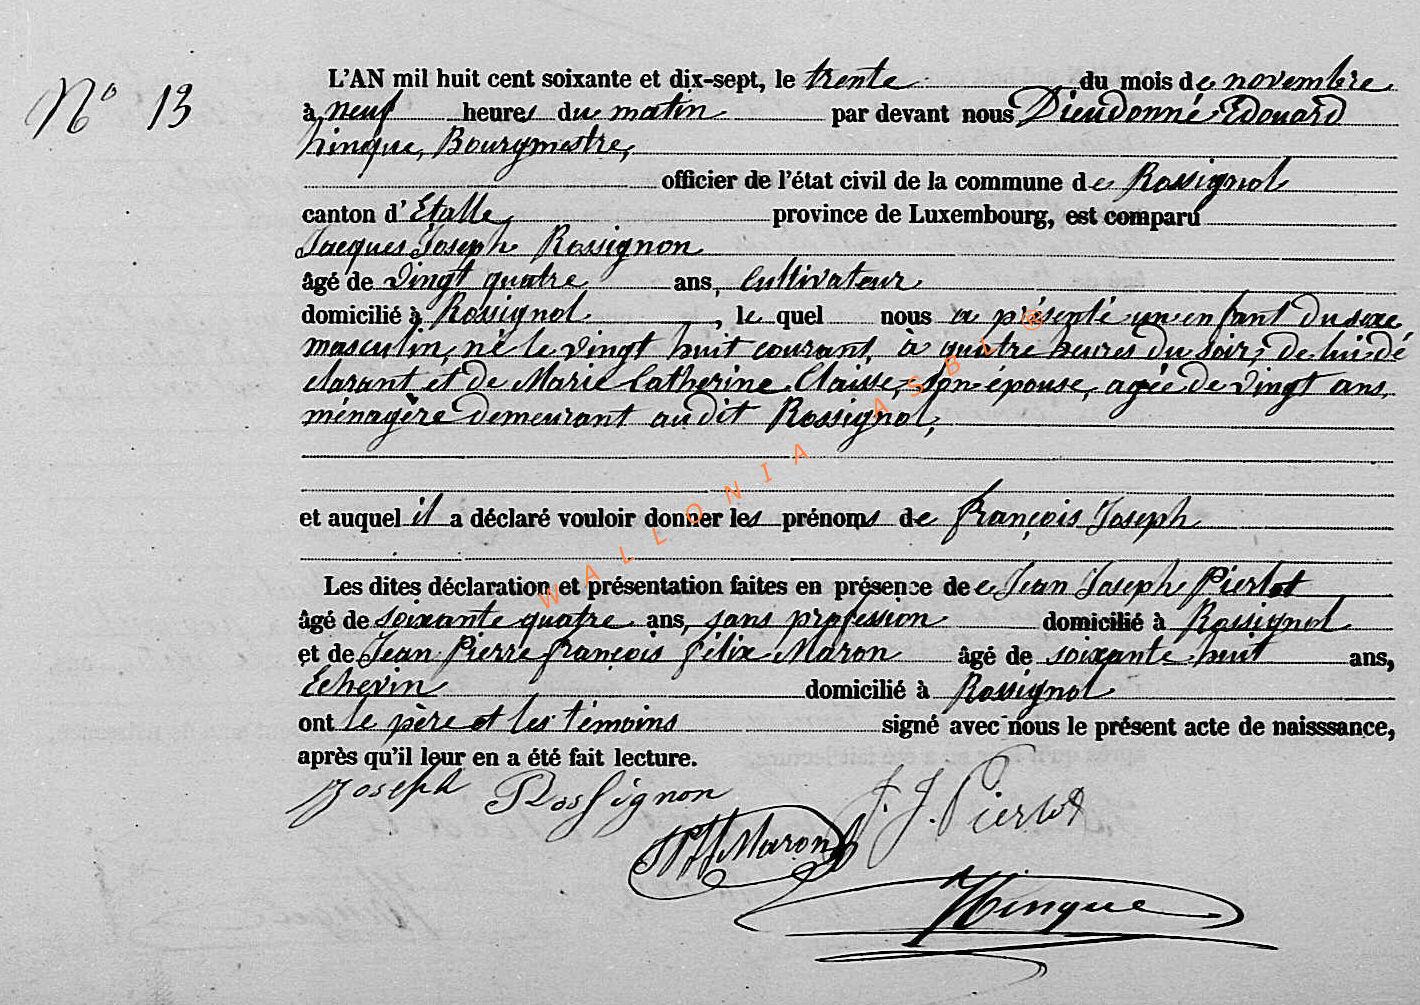 N° 13
L'AN mil huit cent soixante et dix-sept, le trente du mois de novembre
à neuf heures du matin par devant nous Dieudonné Edouard
hinque, Bourgmestre,
officier de l'état civil de la commune de Rossignol
canton d'Etalle province de Luxembourg, est comparu
Jacques Joseph Rossignon
âgé de vingt quatre ans, Cultivateur
domicilié à Rossignol, le quel nous a présenté un enfant du sexe
masculin, né le vingt huit courant, à quatre heures du soir, de lui dé
clarant et de Marie Catherine Claisse, son épouse, agée de vingt ans,
ménagère demeurant audit Rossignol,
et auquel il a déclaré vouloir donner les prénoms de François Joseph
Les dites déclaration et présentation faites en présence de e Jean Joseph Pierlot
âgé de soixante quatre ans, sans profession domicilié à Rossignol
et de Jean Pierre François Félix Maron âgé de soixante huit ans,
Echevin domicilié à Rossignol
ont le père et les témoins signé avec nous le présent acte de naisssance,
après qu'il leur en a été fait lecture.
Joseph Rossignon J. J. Pierlot
Maron
Hinque
WALLONIA ASBL ®